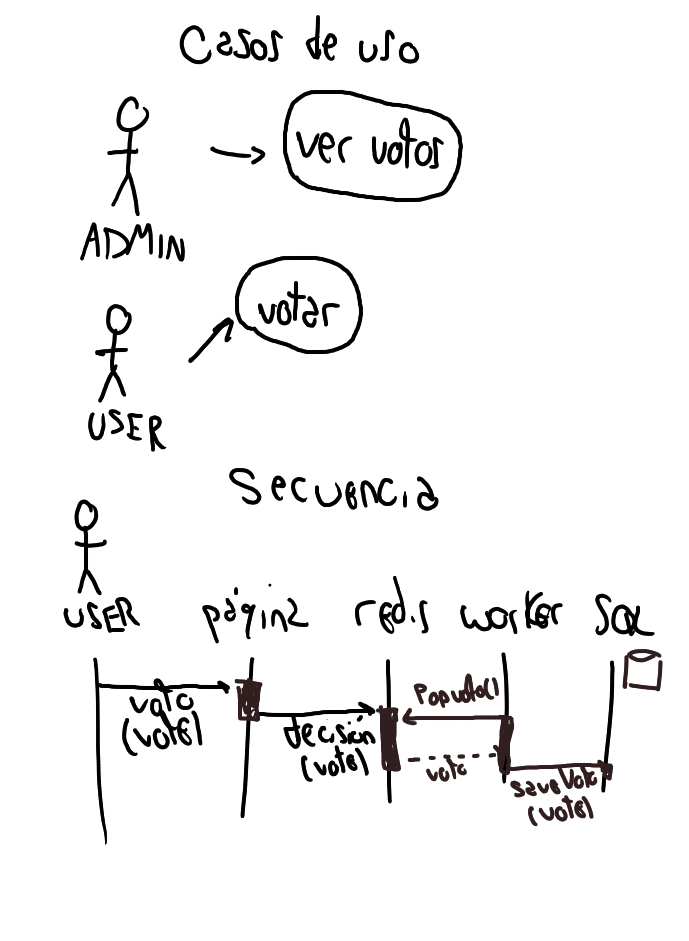 Casos de uso
ver votos
ADMIN
votar
USER
Secuencia
USER página redis worker SQL
voto
(vote)
decisión
(vote)
Popvoto()
voto
saveVoto
(vote)